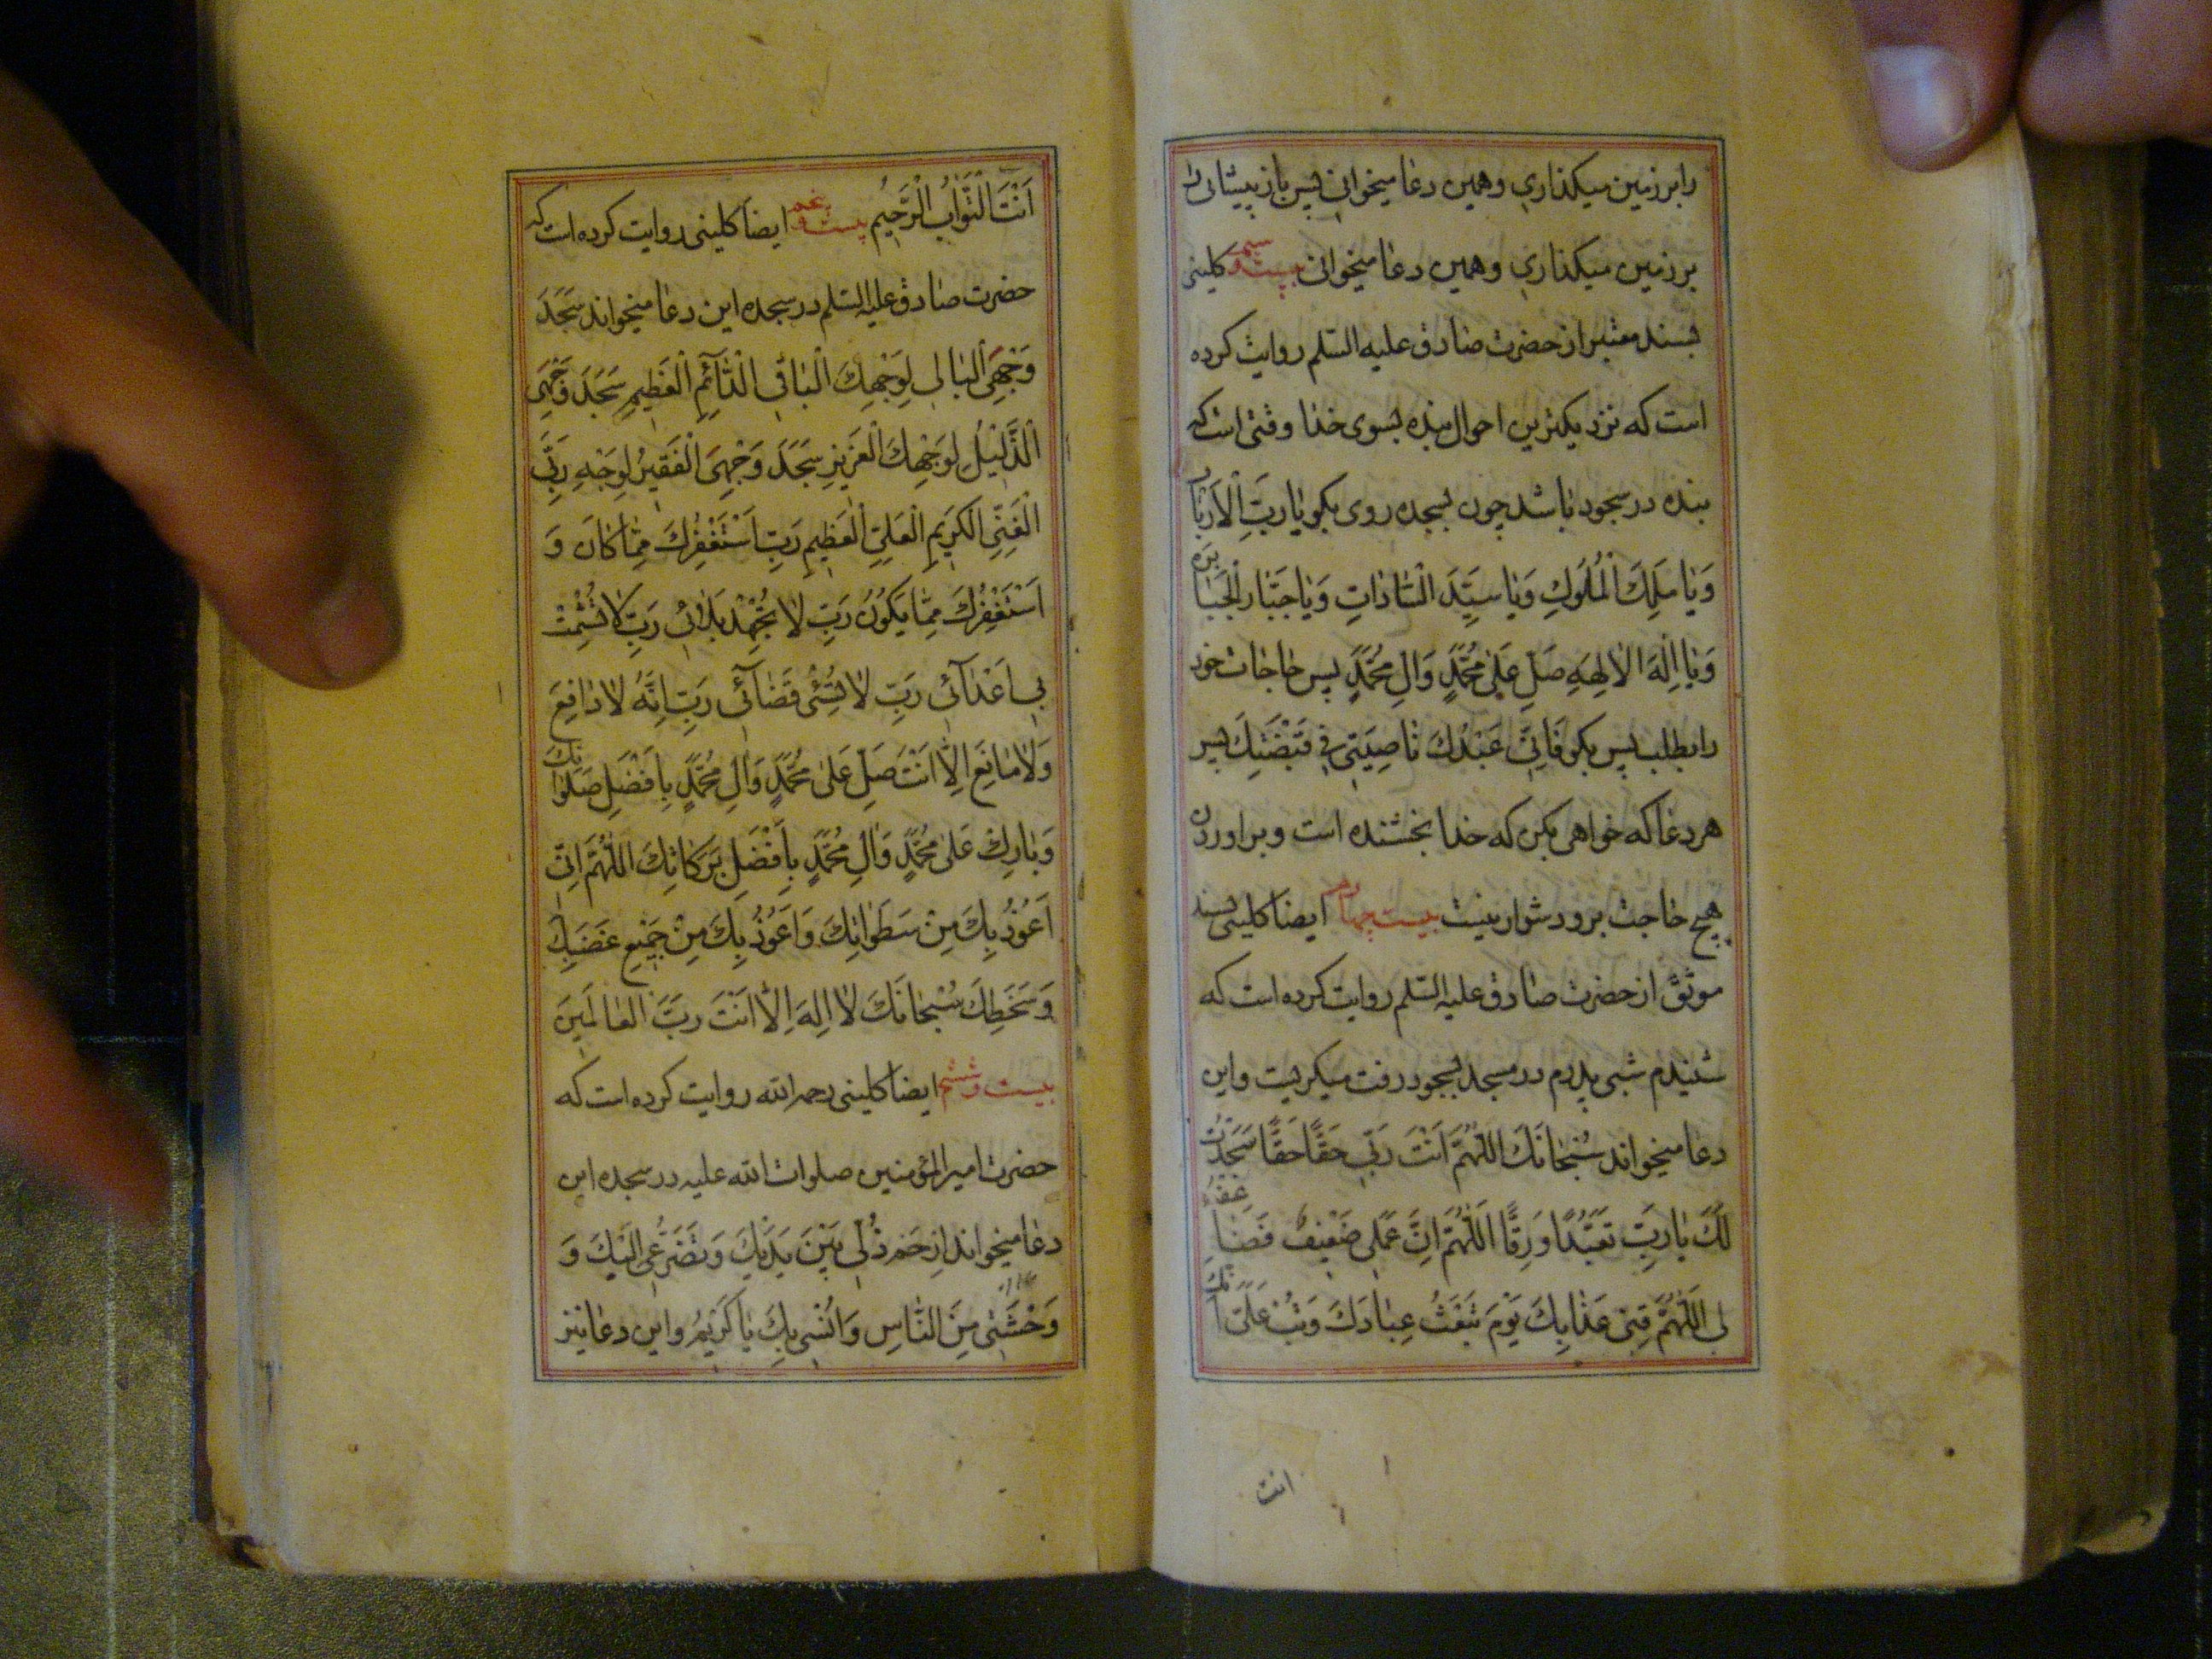 را بر زمین میگذاری وهمین دعا میخوانی پس باز پیشانی را
بر زمین میگذاری وهمین دعا میخوانی بیست و سیم کلینی
بسند معتبر از حضرت صادق علیه السلم روایت کرده
است که نزدیکترین احوال بنده بسوی خدا وقتی است که
بنده در سجود باشد چون بسجده روی بگو یٰا رَبَّ الْاَرْبٰابِ
وَیٰا مَلِكَ الْمُلُوكِ وَیٰا سَیِّدَ السّٰادٰاتِ وَیٰا جَبّٰارَ الْجَبٰابِرَهِ
وَیٰا اِلٰهَ الْاٰلِهَهِ صَلِّ عَلیٰ مُحَمَّدٍ وَاٰلِ مُحَمَّدٍ پس حاجات خود
را بطلب پس بگو فَاِنّی عَبْدُكَ نٰاصِیَتی فی قَبْضَتِكَ پس
هر دعا که خواهی بکن که خدا بخشنده است وبر اوردن
هیچ حاجت برو دشوار نیست بیست چهارم ایضا کلینی بسند
موثق از حضرت صادق علیه السلم روایت کرده است که
شنیدم شبی پدرم در مسجد بسجود رفت میگریست واین
دعا میخواند سُبْحٰانَكَ اللّٰهُمَّ اَنْتَ رَبّی حَقًّا حَقًّا سَجَدْتُ
لَكَ یٰا رَبِّ تَعَبُّدًا وَرِقًّا اَللّٰهُمَّ اِنَّ عَمَلی ضَعیفٌ فَضٰاعِفْهُ
لی اَللّٰهُمَّ قِنی عَذٰابَكَ یَوْمَ تَبْعَثُ عِبٰادَكَ وَتُبْ عَلَیَّ اِنَّكَ
انت
اَنْتَ التَّوّٰابُ الرَّحیُم بیست و پنجم ایضا کلینی روایت کرده است که
حضرت صادق علیه السلم در سجده این دعا میخواند سَجَدَ
وَجْهِیَ الْبٰالی لِوَجْهِكَ الْبٰاقی الدّٰآئِمِ الْعَظیمِ سَجَدَ وَجْهِیَ
الذَّلیلُ لِوَجْهِكَ الْعَزیزِ سَجَدَ وَجْهِیَ الْفَقیرُ لِوَجْهِ رَبّی
الْغَنِیِّ الْكَریمِ الْعَلِیِّ الْعَظیمِ رَبِّ اَسْتَغْفِرُكَ مِمّٰا كٰانَ وَ
اَسْتَغْفِرُكَ مِمّٰا یَكُونُ رَبِّ لٰا تُجْهِدْ بَلٰائی رَبِّ لٰا تُشْمِتْ
بی اَعْدٰآئی رَبِّ لٰا تُسِئْ قَضٰآئی رَبِّ اِنَّهُ لٰا دٰافِعَ
وَلٰا مٰانِعَ اِلّٰا اَنْتَ صَلِّ عَلیٰ مُحَمَّدٍ وَاٰلِ مُحَمَّدٍ بِاَفْضَلِ صَلَوٰاتِكَ
وَبٰارِكْ عَلیٰ مُحَمَّدٍ وَاٰلِ مُحَمَّدٍ بِاَفْضَلِ بَرَكٰاتِكَ اللّٰهُمَّ اِنّی
اَعُوذُ بِكَ مِنْ سَطَوٰاتِكَ وَاَعُوذُ بِكَ مِنْ جَمیعِ غَضَبِكَ
وَسَخَطِكَ سُبْحٰانَكَ لٰا اِلٰهَ اِلّٰا اَنْتَ رَبَّ الْعٰالَمینَ
بیست و ششم ایضا کلینی رحمه الله روایت کرده است که
حضرت امیر المؤمنین صلوات الله علیه در سجده این
دعا میخواند اِرْحَمْ ذُلّی بَیْنَ یَدَیْكَ وَتَضَرُّعی اِلَیْكَ وَ
وَحْشَتی مِنَ النّٰاسِ وَاُنْسی بِكَ یٰا كَریُم واین دعا نیز